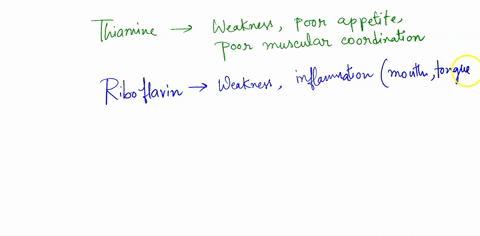 Thiamine → Weakness, poor appetite,
Poor muscular coordination
Riboflavin → Weakness, inflammation (mouth, tongue